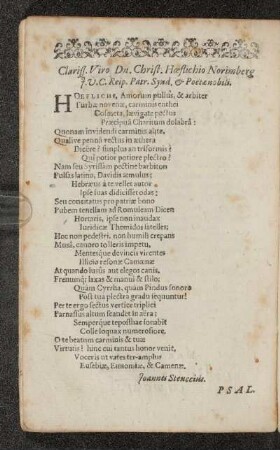 Clariss. Viro Dn. Christ. Hœflichio Norimberg
J.V.C. Reip. Patr. Synd. & Poëtæ nobili.
HOEFLICHE, Amorum pullus, & arbiter
Turbæ novenæ, carminis enthei
Colineta, lævigate pectus
Præcipuâ Charitum dolabrâ:
Quonam invidendi carminis alite,
Qualive pennâ vectus in æthera
Dicere? simplus an triformis?
Qui potior potiore plectro?
Nam seu Syrissam pectine barbiton
Pulsas latino, Davidis æmulus;
Hebræus à te vellet autor
Ipse suas didicisse odas:
Seu consitatus pro patriæ bono
Pubem tenellam ad Romuleam Dicen
Hortaris, ipse non inaudax
Juridicæ Themidos satelles:
Hoc non pedestri, non humili crepans
Musâ, conoro tolleris impetu,
Mentesque devincis virentes
Illicio resonæ Camœnæ
At quando lusus aut elegos canis,
Fremunq; laxas & manui & stilo;
Quàm Cyrrha, quàm Pindus sonora
Post tua plectra gradu sequuntur!
Per te ergo sectus vertice triplici
Parnassus altum scandit in æthra:
Semperque te posthac sonabit
Colle loquax numerosiore.
O te beatum carminis & tuæ
Virtutis! hinc cui tantus honor venit,
Voceris ut vates ter-amplus
Eusebiæ, Eunomiæ, & Camenæ.
Joannis Stenccius.
PSAL.